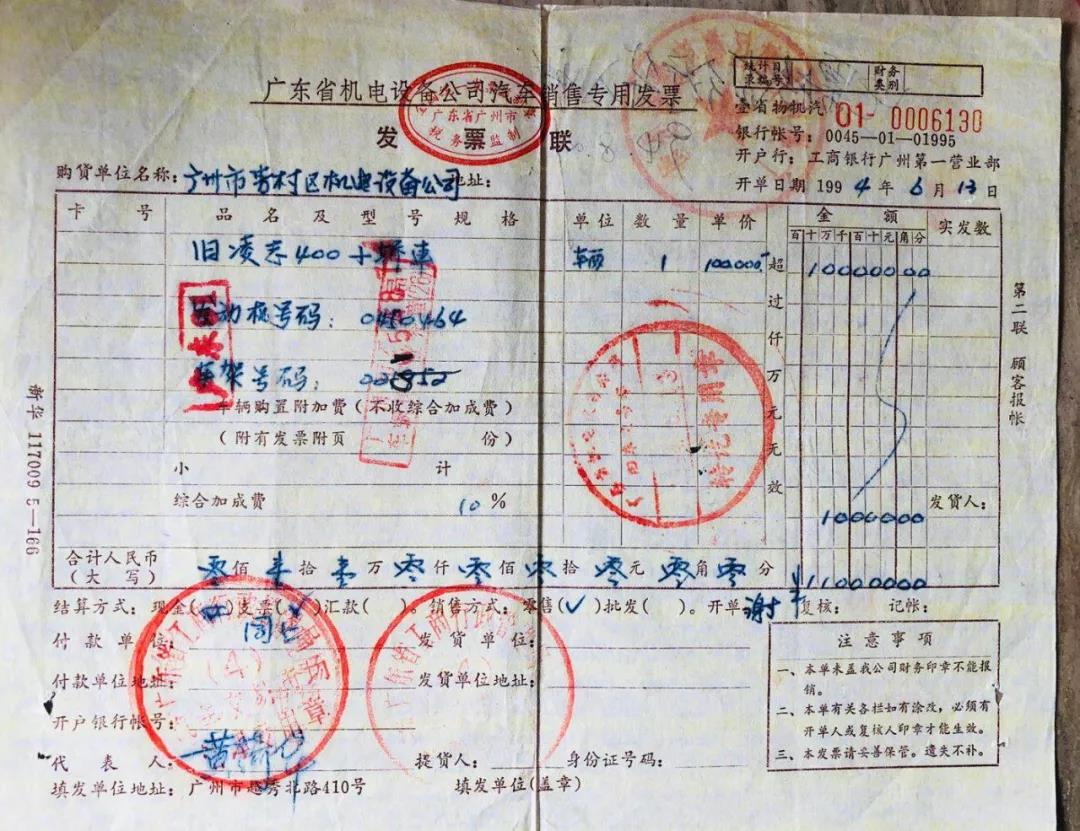 统计目录编号 财务类别
广东省机电设备公司汽车销售专用发票
壹省物机汽 01- 0006130
发票联
广东省广州市
税务监制
银行帐号：0045—01—01995
开户行：工商银行广州第一营业部
购货单位名称：广州市芳村区机电设备公司 地址：
开单日期 1994年6月13日
卡号 品名及型号规格 单位 数量 单价 金额 实发数
百十万千百十元角分
旧凌志400 轿車 辆 1 100000 10000000
发动机号码：0450464
车架号码：
车辆购置附加费（不收综合加成费）
（附有发票附页 份）
小计
综合加成费 10% 1000000
发货人：
超过仟万元无效
合计人民币（大写） 零佰 拾壹万零仟零佰零拾零元零角零分 ¥11000000
结算方式：现金( )支票(✓)汇款( )。销售方式：零售(✓)批发( )。开单 谢 复核： 记帐：
付款单位：同上 发货单位：
付款单位地址： 发货单位地址：
开户银行帐号：
代表人： 提货人： 身份证号码：
填发单位地址：广州市越秀北路410号 填发单位(盖章)
注意事项
一、本单未盖我公司财务印章不能报销。
二、本单有关各栏如有涂改，必须有开单人或复核人印章才能生效。
三、本发票请妥善保管。遗失不补。
第二联 顾客报帐
新华 117009 5—166